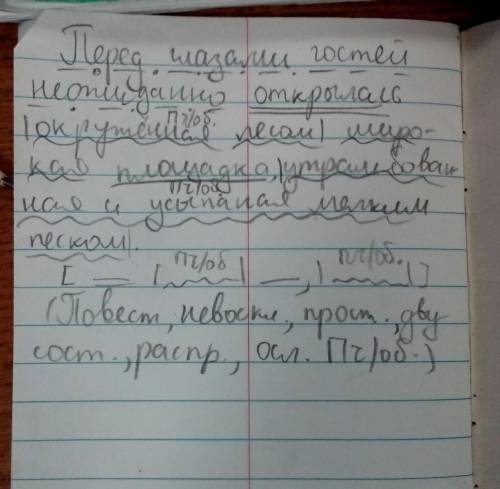 Перед глазами гостей
неожиданно открылась
Пч/об.
|окружённая лесом| широ-
кая площадка,|утрамбован
Пч/об
ная и усыпаная мелким
песком|.
Пч/об пч/об.
[ = | | —, | |]
(Повест, невоскл., прост., дву
сост., распр., осл. Пч/об.)